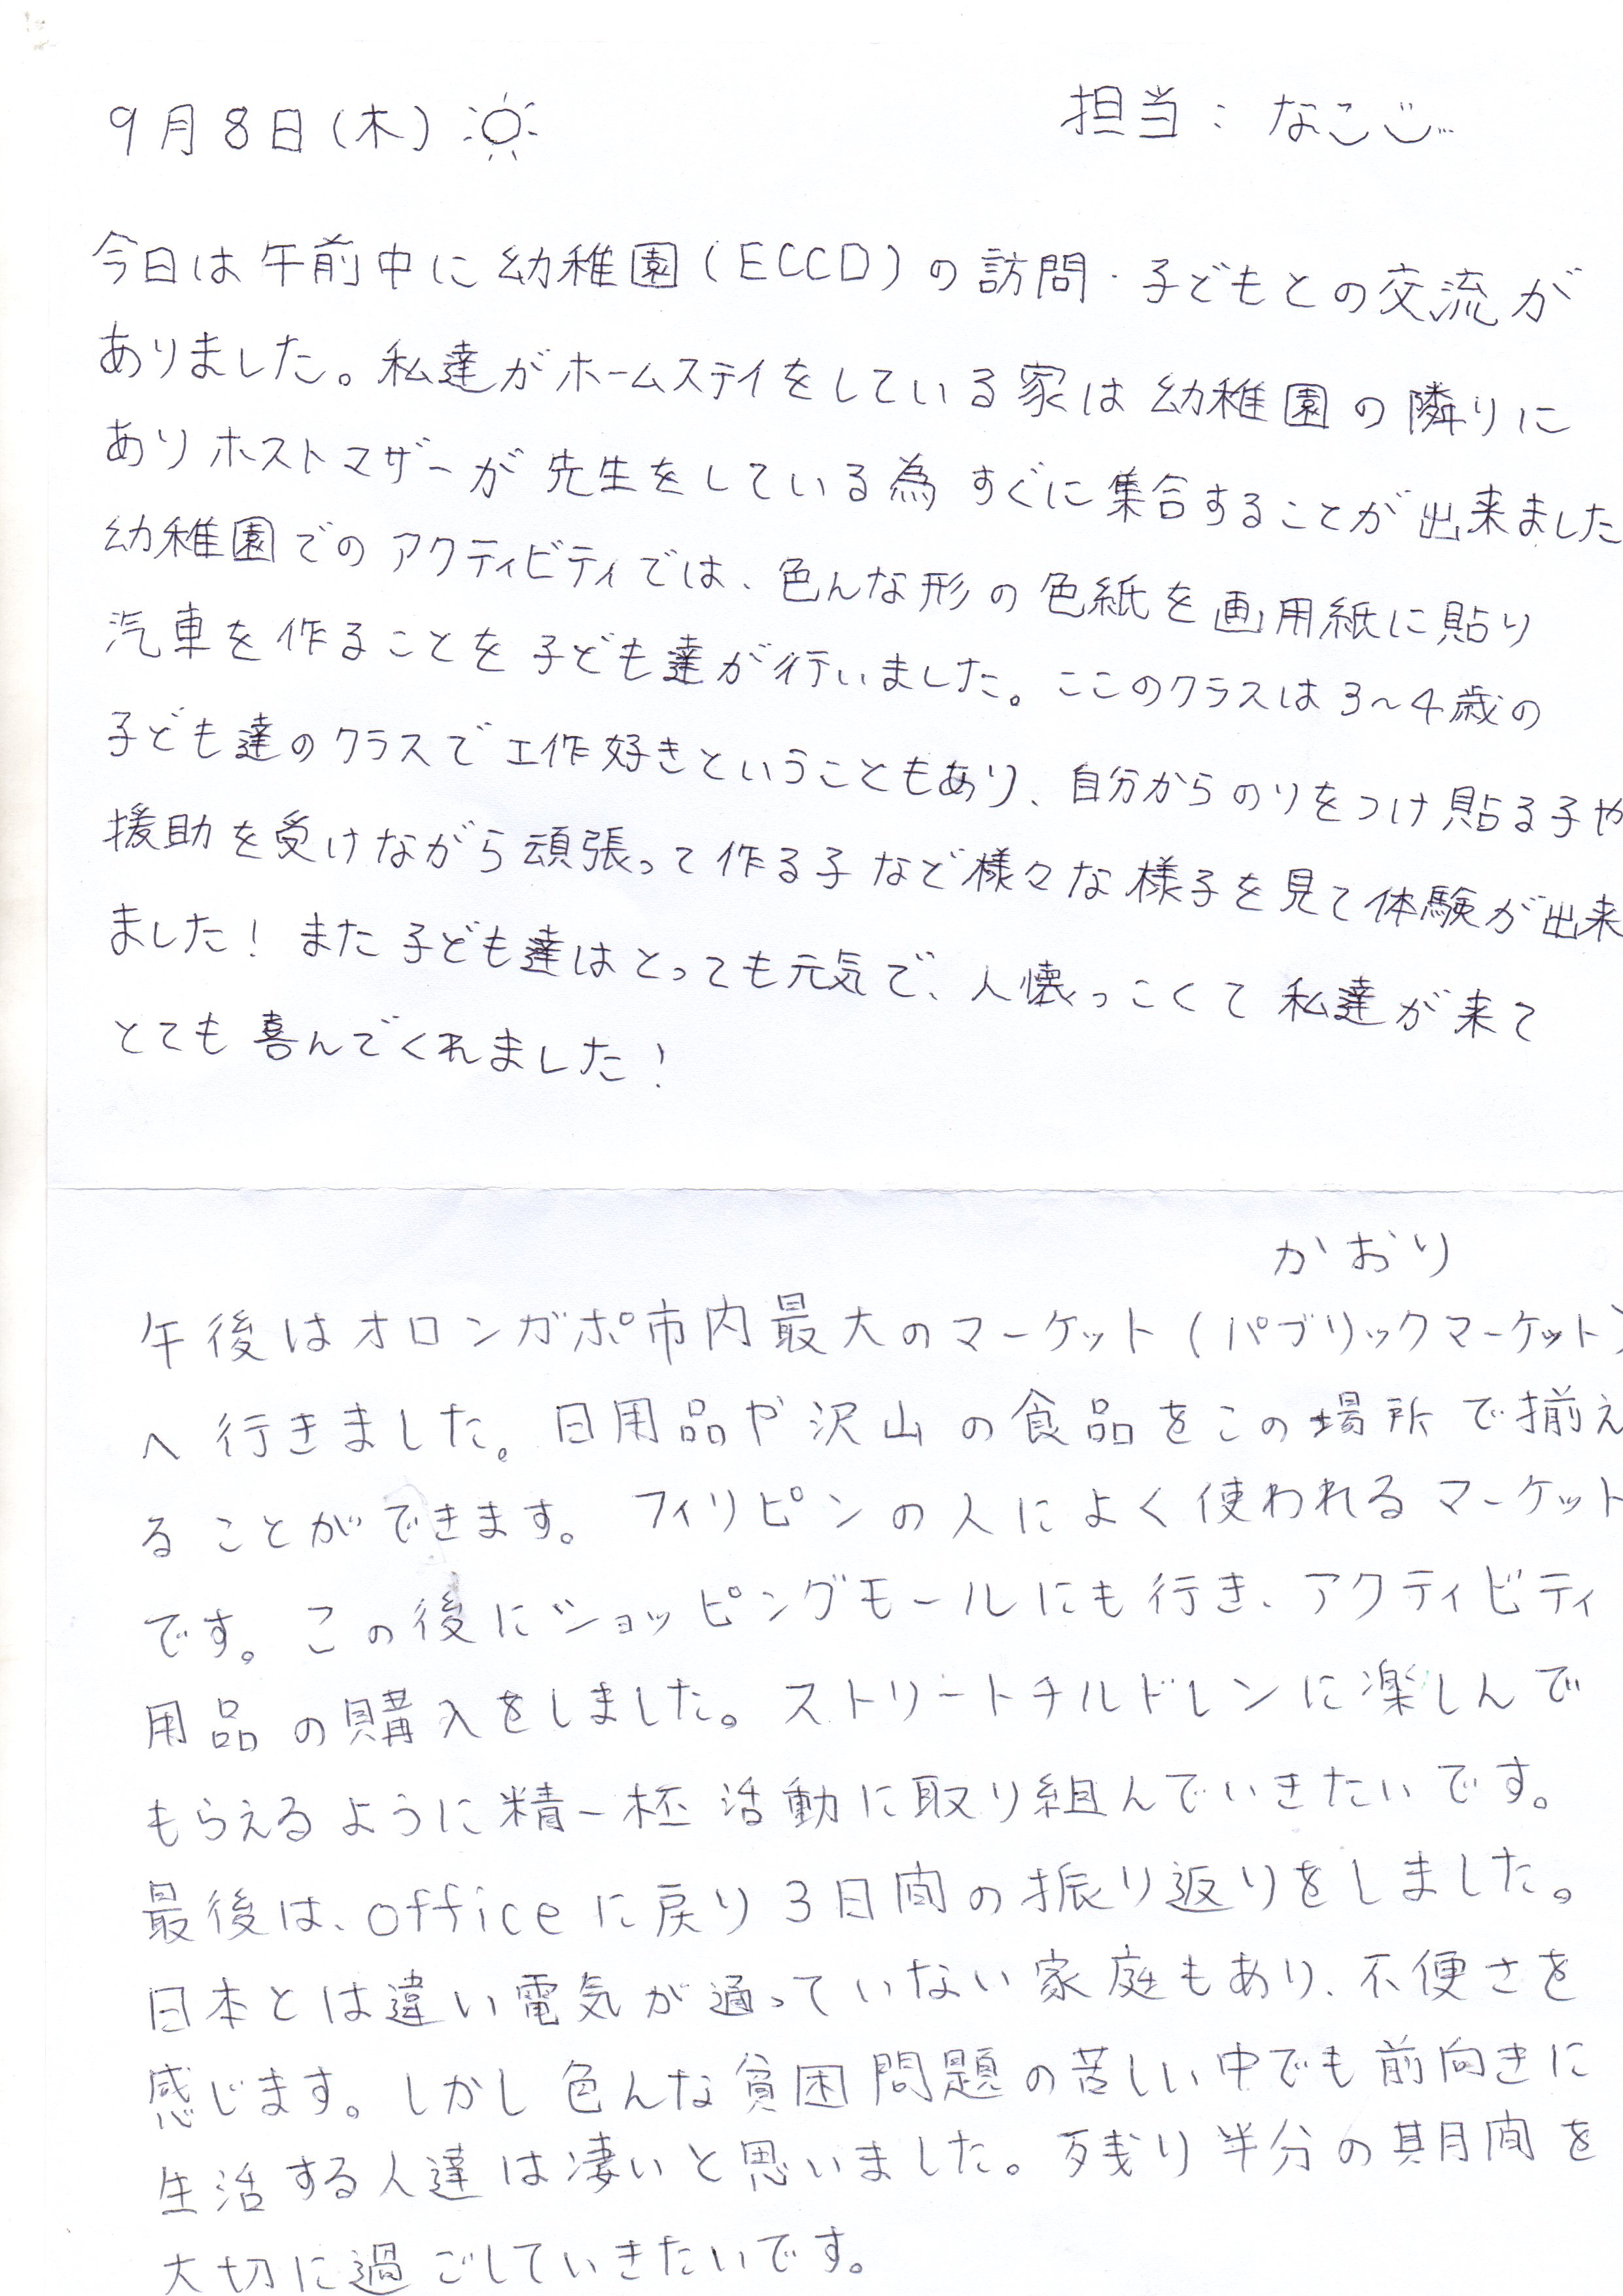 9月8日(木)
担当：なこじ
今日は午前中に幼稚園(ECCD)の訪問・子どもとの交流が
ありました。私達がホームステイをしている家は幼稚園の隣りに
ありホストマザーが先生をしている為すぐに集合することが出来ました
幼稚園でのアクティビティでは、色んな形の色紙を画用紙に貼り
汽車を作ることを子ども達が行いました。ここのクラスは3〜4歳の
子ども達のクラスで工作好きということもあり、自分からのりをつけ貼る子や
援助を受けながら頑張って作る子など様々な様子を見て体験が出来
ました！また子ども達はとっても元気で、人懐っこくて私達が来て
とても喜んでくれました！
かおり
午後はオロンガポ市内最大のマーケット(パブリックマーケット)
へ行きました。日用品や沢山の食品をこの場所で揃え
ることができます。フィリピンの人によく使われるマーケット
です。この後にショッピングモールにも行き、アクティビティ
用品の購入をしました。ストリートチルドレンに楽しんで
もらえるように精一杯活動に取り組んでいきたいです。
最後は、officeに戻り3日間の振り返りをしました。
日本とは違い電気が通っていない家庭もあり、不便さを
感じます。しかし色んな貧困問題の苦しい中でも前向きに
生活する人達は凄いと思いました。残り半分の期間を
大切に過ごしていきたいです。